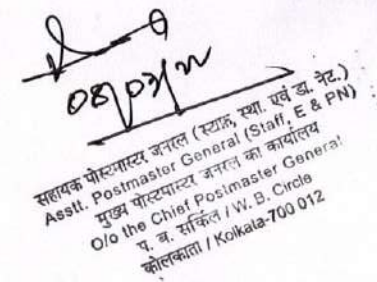 08/03/22
सहायक पोस्टमास्टर जनरल (स्टाफ, स्था. एवं डा. नेट.)
Asstt. Postmaster General (Staff, E & PN)
मुख्य पोस्टमास्टर जनरल का कार्यालय
O/o the Chief Postmaster General
प. ब. सर्किल / W. B. Circle
कोलकाता / Kolkata-700 012